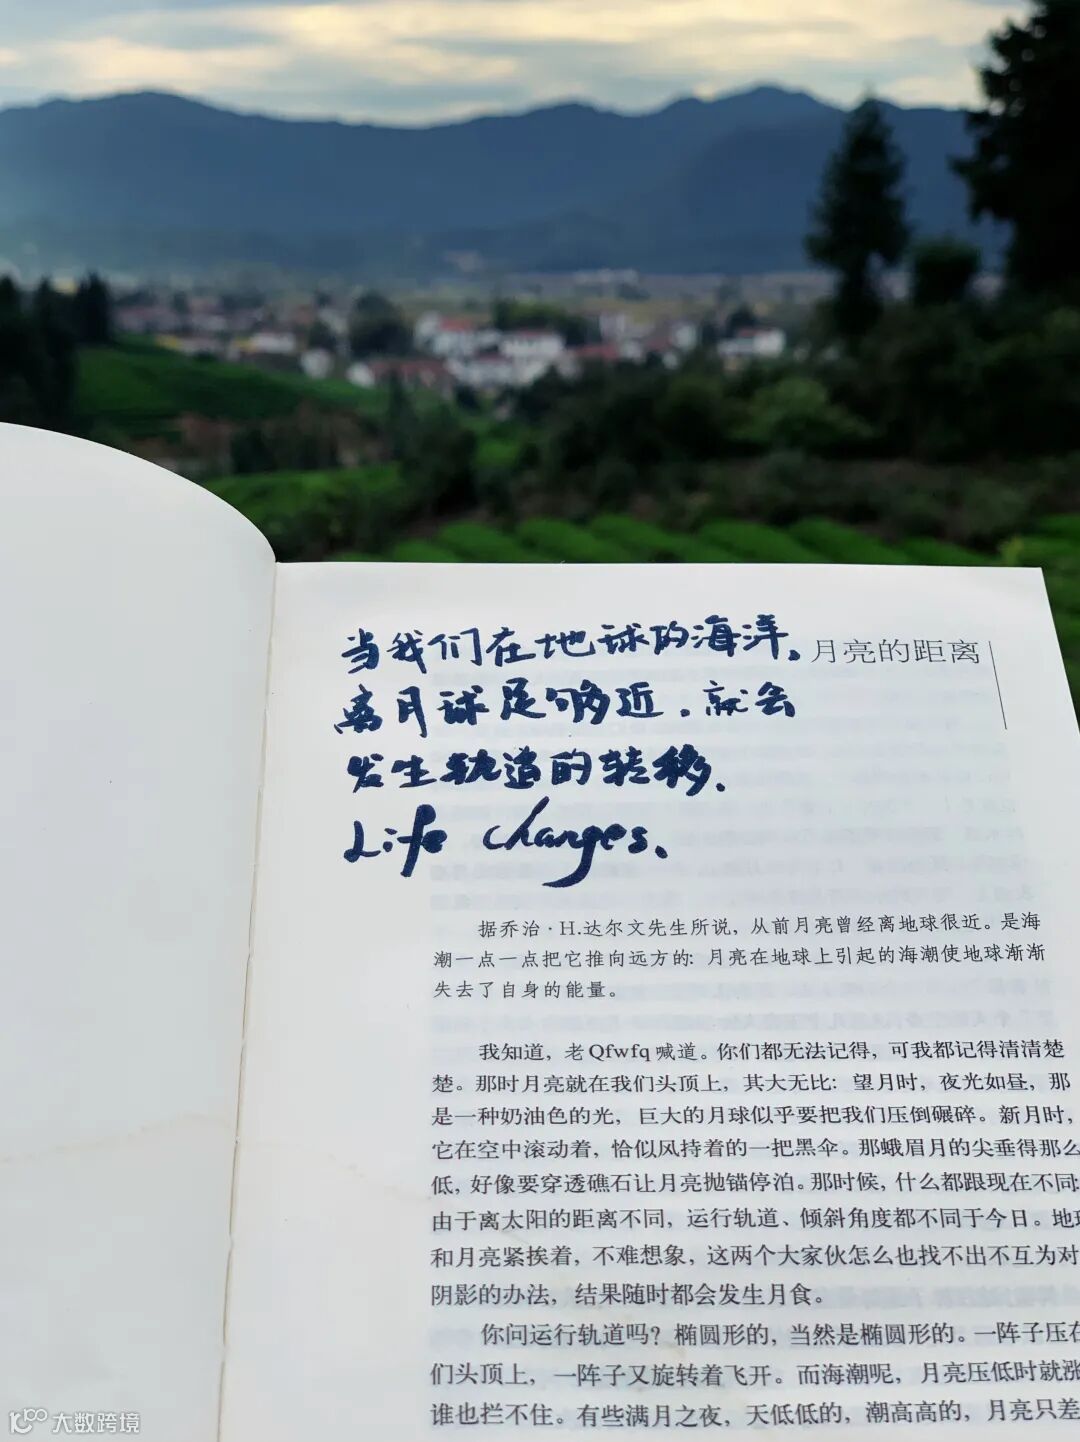 当我们在地球的海洋。
离月球足够近，就会
发生轨道的转移.
Life changes.
月亮的距离
据乔治·H.达尔文先生所说，从前月亮曾经离地球很近。是海
潮一点一点把它推向远方的：月亮在地球上引起的海潮使地球渐渐
失去了自身的能量。
我知道，老Qfwfq喊道。你们都无法记得，可我都记得清清楚
楚。那时月亮就在我们头顶上，其大无比：望月时，夜光如昼，那
是一种奶油色的光，巨大的月球似乎要把我们压倒碾碎。新月时，
它在空中滚动着，恰似风持着的一把黑伞。那蛾眉月的尖垂得那么
低，好像要穿透礁石让月亮抛锚停泊。那时候，什么都跟现在不同：
由于离太阳的距离不同，运行轨道、倾斜角度都不同于今日。地球
和月亮紧挨着，不难想象，这两个大家伙怎么也找不出不互为对
阴影的办法，结果随时都会发生月食。
你问运行轨道吗？椭圆形的，当然是椭圆形的。一阵子压在
们头顶上，一阵子又旋转着飞开。而海潮呢，月亮压低时就涨
谁也拦不住。有些满月之夜，天低低的，潮高高的，月亮只差
大数跨境